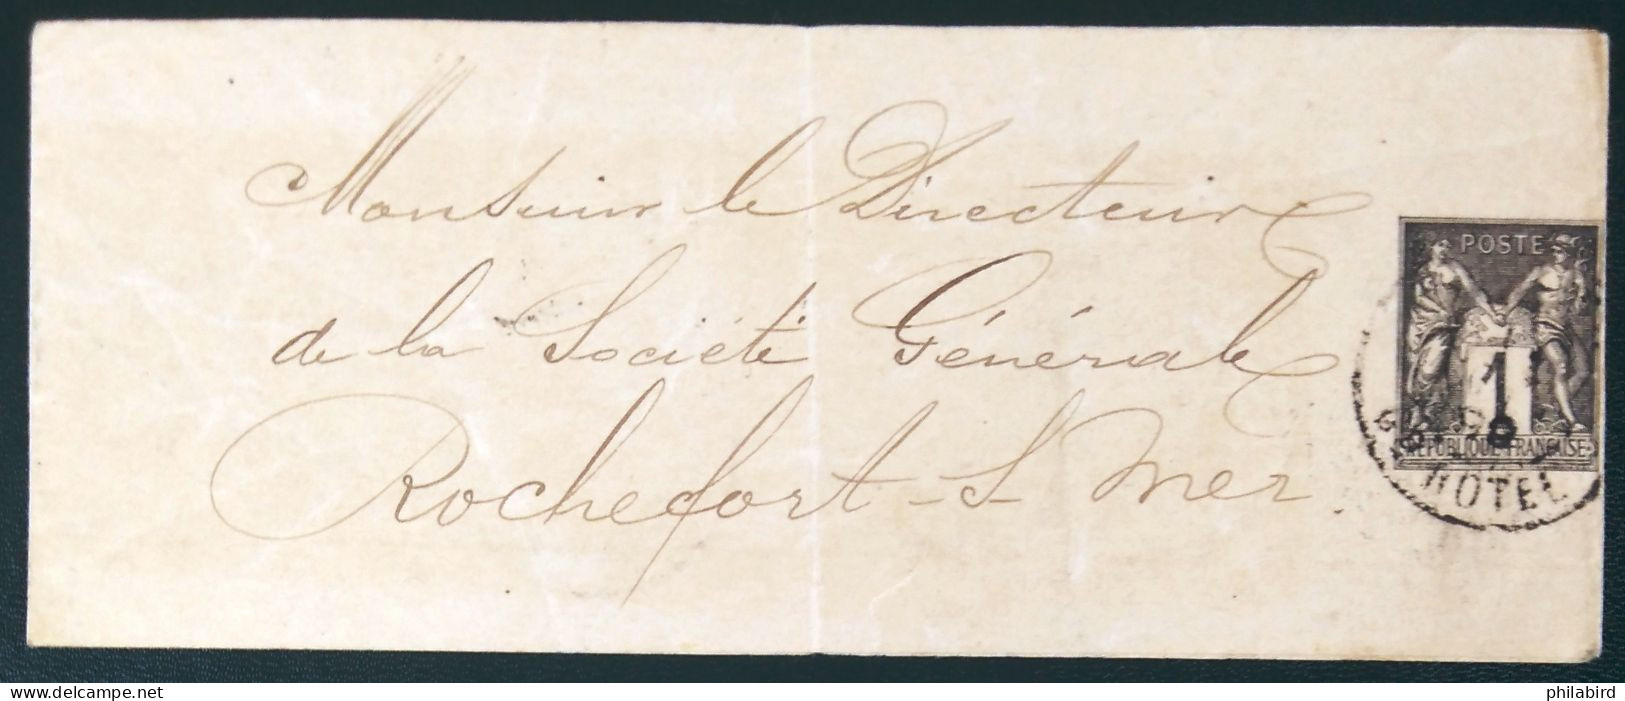 Monsieur le Directeur
de la Société Générale
Rochefort-s-Mer
POSTE
1
REPUBLIQUE FRANÇAISE
HOTEL
www.delcampe.net
philabird